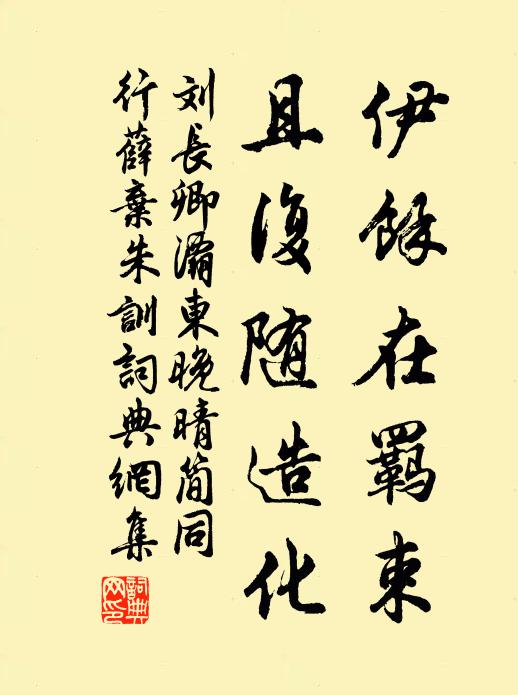 伊餘在羈束
且復随造化
刘長卿灞東晚晴简同
行薛棄朱訓詞典網集
詞典網印